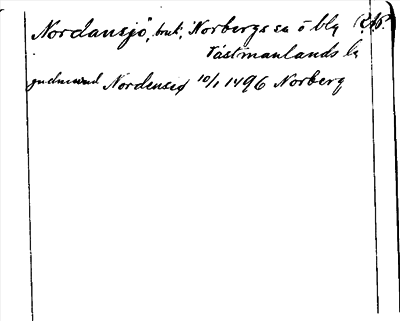 Nordansjö, bruk, Norbergs sn o blg
Västmanlands l.
gudmund Nordensiø 10/1 1496 Norberg